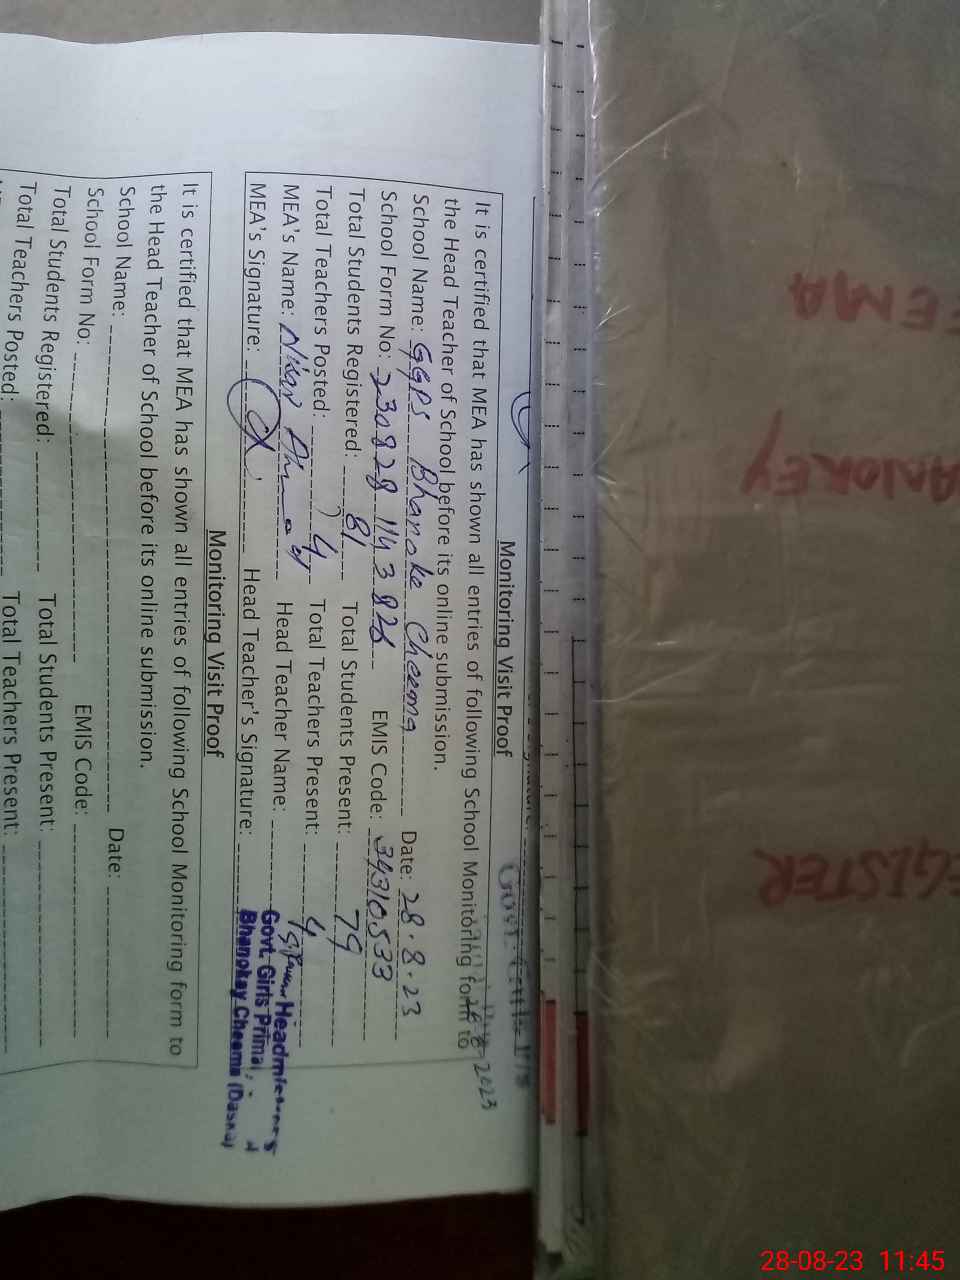 Monitoring Visit Proof
It is certified that MEA has shown all entries of following School Monitoring form to
the Head Teacher of School before its online submission.
School Name: GGPS Bhanoke Cheema Date: 28.8.23
School Form No: EMIS Code: 34310533
Total Students Registered: 81 Total Students Present: 79
Total Teachers Posted: 4 Total Teachers Present: 4
MEA's Name: Head Teacher Name:
MEA's Signature: Head Teacher's Signature:
Headmistress
Govt. Girls Primary
Bhanokay Cheema (Daska)
Monitoring Visit Proof
It is certified that MEA has shown all entries of following School Monitoring form to
the Head Teacher of School before its online submission.
School Name: Date:
School Form No: EMIS Code:
Total Students Registered: Total Students Present:
Total Teachers Posted: Total Teachers Present:
EEMA
ANOKEY
EGISTER
28-08-23 11:45